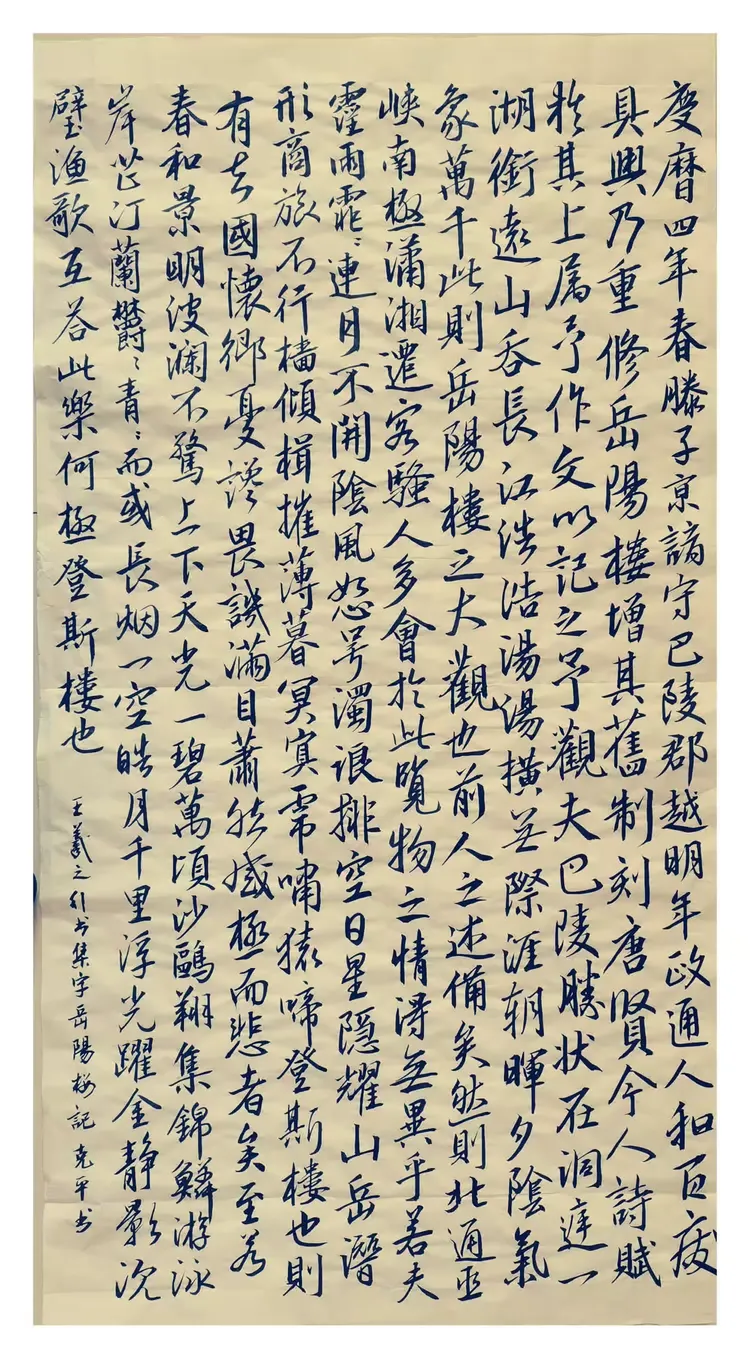 慶曆四年春滕子京謫守巴陵郡越明年政通人和百廢
具興乃重修岳陽樓增其舊制刻唐賢今人詩賦
於其上属予作文以記之予觀夫巴陵勝状在洞庭一
湖銜遠山吞長江浩浩湯湯横無際涯朝暉夕陰氣
象萬千此則岳陽樓之大觀也前人之述備矣然則北通巫
峽南極瀟湘遷客騷人多會於此覽物之情得無異乎若夫
霪雨霏〻連月不開陰風怒号濁浪排空日星隱耀山岳潛
形商旅不行檣傾楫摧薄暮冥冥虎嘯猿啼登斯樓也則
有去國懷鄉憂讒畏譏滿目蕭然感極而悲者矣至若
春和景明波瀾不驚上下天光一碧萬頃沙鷗翔集錦鱗游泳
岸芷汀蘭欝〻青〻而或長烟一空皓月千里浮光躍金静影沉
璧玉漁歌互荅此樂何極登斯樓也
王羲之行书集字岳陽楼記 克平书